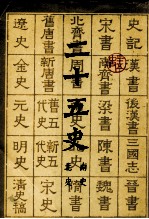 史記 漢書 後漢書 三國志 晉書
宋書 南齊書 梁書 陳書 魏書
二十五史
北齊書 周書
南史 北史
舊唐書 新唐書 舊五代史 新五代史 宋史
遼史 金史 元史 明史 清史稿